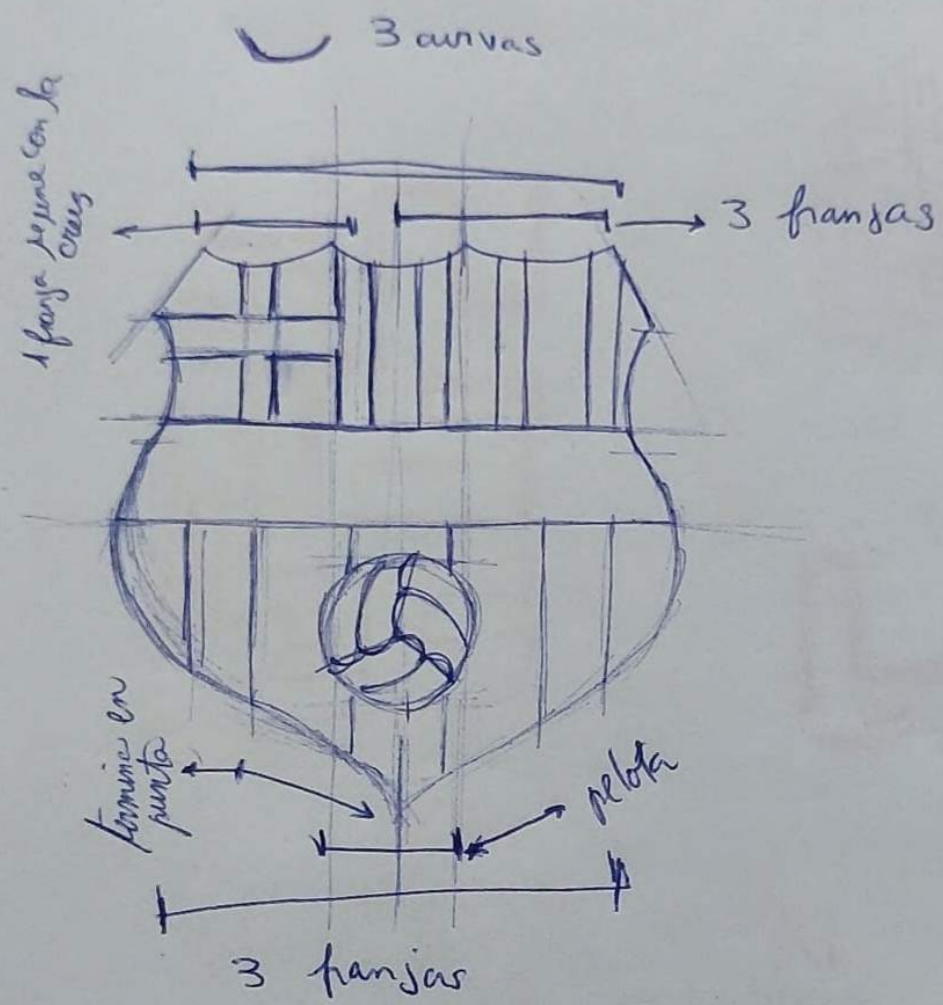 3 curvas
1 franja se une con la
cruz
3 franjas
termina en
punta
pelota
3 franjas